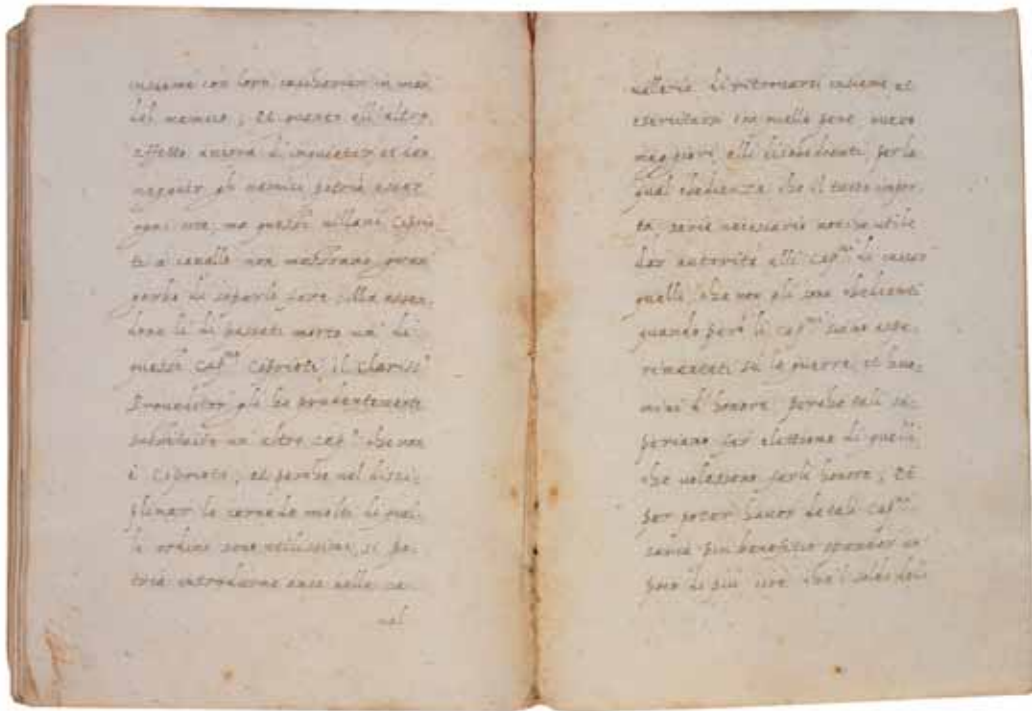 insieme con loro cascherian in man
del nemico; Et quanto all'altro
effetto ancora d'inquietar et dan
negiar gli nemici potria esser
ogni vno, ma questi villani Ciprio
ti a cavallo non mancherano
di saperlo fare, Ma essen
done li dì passati morto un' di
questi Cap.ni Ciprioti il Clariss.o
Proueditor gli ha prudentemente
substituito un altro cap.o che non
è Ciprioto, et perche nel disci-
plinar le cernede molti di quel-
li ordini sono utilissimi, si po-
tria introdurne anco nelle ca-
ual
uallerie di ritrouarsi insieme et
esercitarsi con quelle pene, ouero
maggiori alli disobedienti, per la
qual obedienza che il tutto impor-
ta, saria necessario non che utile
dar autorità alli Cap.ni di cassar
quelli, che non gli sono obedienti
quando però li cap.ni siano espe-
rimentati sù le guerre, et huo-
mini d'honore, perche tali sa-
periano far elettione di quelli
che uolessono farli honore, Et
per poter hauer de tali Cap.ni
saria più beneficio spender un
poco di più che i soldi deli